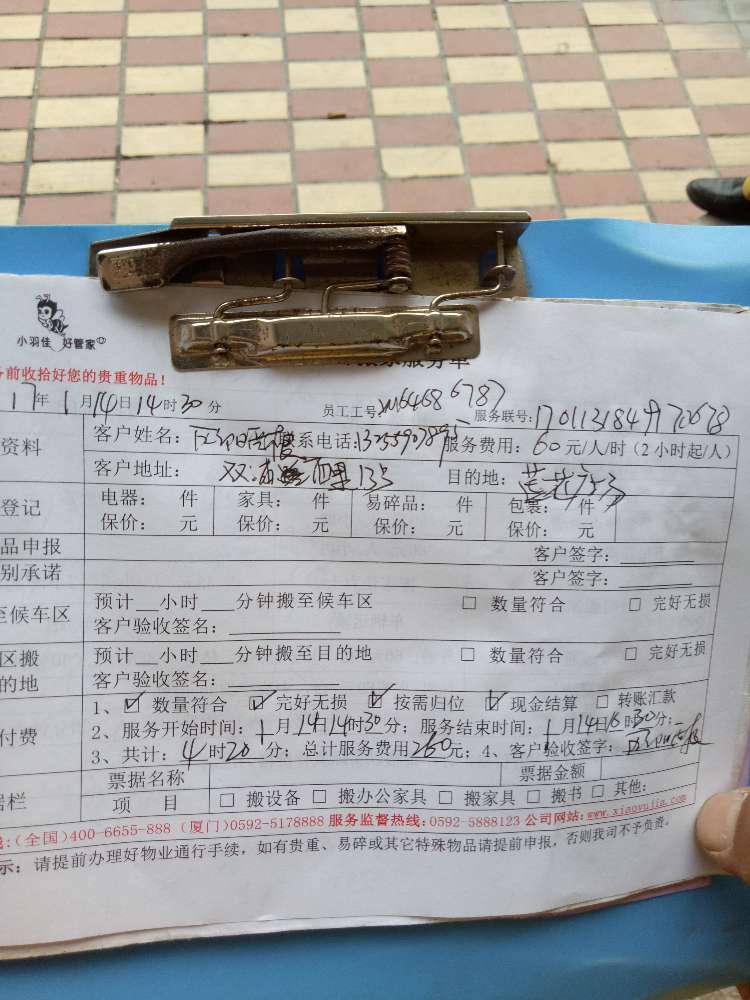 小羽佳 好管家
务前收拾好您的贵重物品！
17年1月14日14时30分 员工工号 服务联号：
资料 客户姓名： 联系电话： 服务费用：60元/人/时（2小时起/人）
客户地址： 目的地：
登记 电器： 件 家具： 件 易碎品： 件 包裹： 件
保价： 元 保价： 元 保价： 元 保价： 元
品申报 客户签字：
别承诺 客户签字：
至候车区 预计__小时___分钟搬至候车区 □ 数量符合 □ 完好无损
客户验收签名：
区搬 预计__小时___分钟搬至目的地 □ 数量符合 □ 完好无损
的地 客户验收签名：
1、☑ 数量符合 ☑ 完好无损 ☑ 按需归位 ☑ 现金结算 □ 转账汇款
付费 2、服务开始时间：1月14日14时30分；服务结束时间：1月14日16时30分；
3、共计：4时20分；总计服务费用260元；4、客户验收签字：
据栏 票据名称 票据金额
项 目 □ 搬设备 □ 搬办公家具 □ 搬家具 □ 搬书 □ 其他：
线：(全国)400-6655-888 (厦门)0592-5178888 服务监督热线：0592-5888123 公司网站：www.xiaoyujia.com
示：请提前办理好物业通行手续，如有贵重、易碎或其它特殊物品请提前申报，否则我司不予负责。